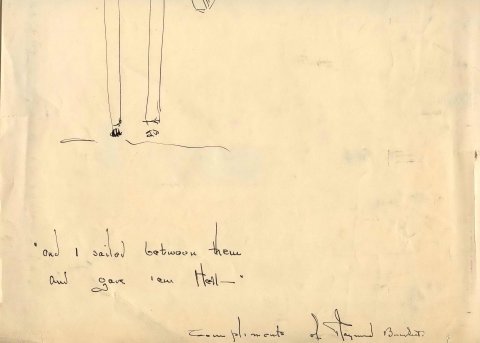 "and I sailed between them
and gave 'em Hell—"
Compliments of